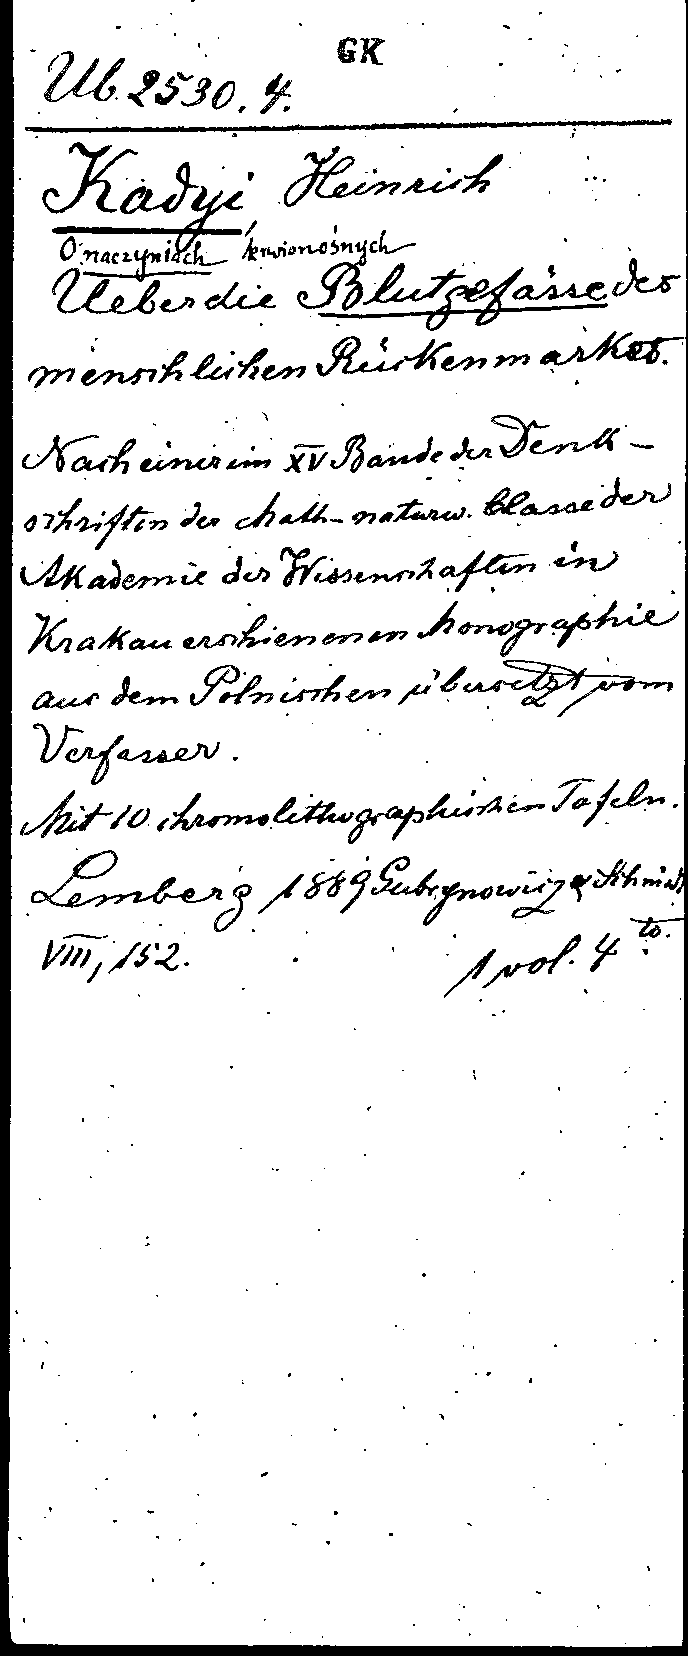 GK
Ub 2530.4.
Kadyi, Heinrich
O naczyniach krwionośnych
Ueber die Blutgefässe des
menschlichen Rückenmarkes.
Nach einer im XV Bande der Denk-
schriften der Math-naturw. Classe der
Akademie der Wissenschaften in
Krakau erschienenen Monographie
aus dem Polnischen übersetzt vom
Verfasser.
Mit 10 chromolithographischen Tafeln.
Lemberg 1889 Gubrynowicz & Schmidt
VIII, 152.
1 vol. 4to.